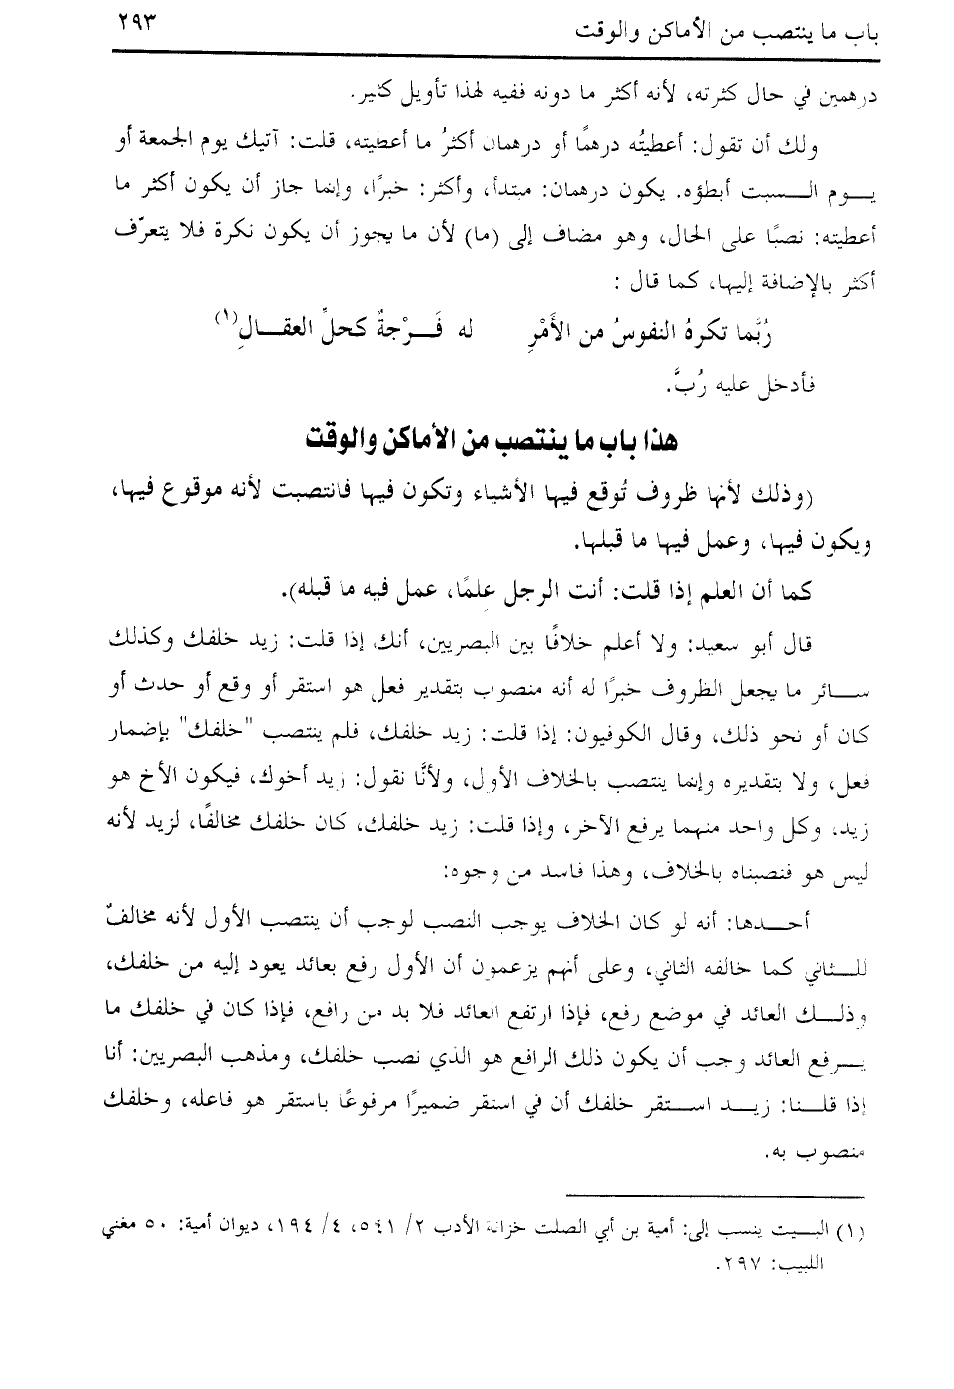 باب ما ينتصب من الأماكن والوقت ٢٩٣
درهمين في حال كثرته، لأنه أكثر ما دونه ففيه لهذا تأويل كثير.
ولك أن تقول: أعطيتُه درهمًا أو درهمان أكثرُ ما أعطيته، قلت: آتيك يوم الجمعة أو
يـوم الـسبت أبطؤه. يكون درهمان: مبتدأ، وأكثر: خبرًا، وإنما جاز أن يكون أكثر ما
أعطيته: نصبًا على الحال، وهو مضاف إلى (ما) لأن ما يجوز أن يكون نكرة فلا يتعرّف
أكثر بالإضافة إليها، كما قال :
رُبَّما تكرهُ النفوسُ من الأَمْرِ له فَـرْجةٌ كحلِّ العقـالِ(١)
فأدخل عليه رُبَّ.
هذا باب ما ينتصب من الأماكن والوقت
(وذلك لأنها ظروف تُوقع فيها الأشياء وتكون فيها فانتصبت لأنه موقوع فيها،
ويكون فيها، وعمل فيها ما قبلها.
كما أن العلم إذا قلت: أنت الرجل علمًا، عمل فيه ما قبله).
قال أبو سعيد: ولا أعلم خلافًا بين البصريين، أنك إذا قلت: زيد خلفك وكذلك
سـائر ما يجعل الظروف خبرًا له أنه منصوب بتقدير فعل هو استقر أو وقع أو حدث أو
كان أو نحو ذلك، وقال الكوفيون: إذا قلت: زيد خلفك، فلم ينتصب "خلفك" بإضمار
فعل، ولا بتقديره وإنما ينتصب بالخلاف الأول، ولأنَّا نقول: زيد أخوك، فيكون الأخ هو
زيد، وكل واحد منهما يرفع الآخر، وإذا قلت: زيد خلفك، كان خلفك مخالفًا، لزيد لأنه
ليس هو فنصبناه بالخلاف، وهذا فاسد من وجوه:
أحـدها: أنه لو كان الخلاف يوجب النصب لوجب أن ينتصب الأول لأنه مخالفٌ
للـثاني كما خالفه الثاني، وعلى أنهم يزعمون أن الأول رفع بعائد يعود إليه من خلفك،
وذلـك العائد في موضع رفع، فإذا ارتفع العائد فلا بد من رافع، فإذا كان في خلفك ما
يـرفع العائد وجب أن يكون ذلك الرافع هو الذي نصب خلفك، ومذهب البصريين: أنا
إذا قلـنا: زيـد اسـتقر خلفك أن في استقر ضميرًا مرفوعًا باستقر هو فاعله، وخلفك
منصوب به.
(١) البـيت ينسب إلى: أمية بن أبي الصلت خزانة الأدب ٢/ ٥٤١، ٤/ ١٩٤، ديوان أمية: ٥٠ مغني
اللبيب: ٢٩٧.